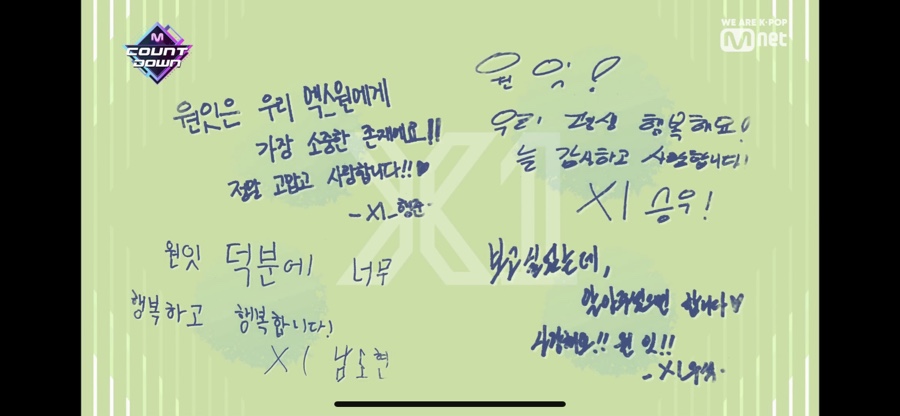 M
COUNT
DOWN
WE ARE K-POP
Mnet
원잇은 우리 엑스원에게
가장 소중한 존재에요!!
정말 고맙고 사랑합니다!!♥
- X1_형준.
원잇!
우리 평생 행복해요!
늘 감사하고 사랑합니다!
X1 승우!
원잇 덕분에 너무
행복하고 행복합니다!
X1 남도현
보고싶었는데,
알아주셨으면 합니다♥
사랑해요!! 원잇!!
- X1_우석.
X1